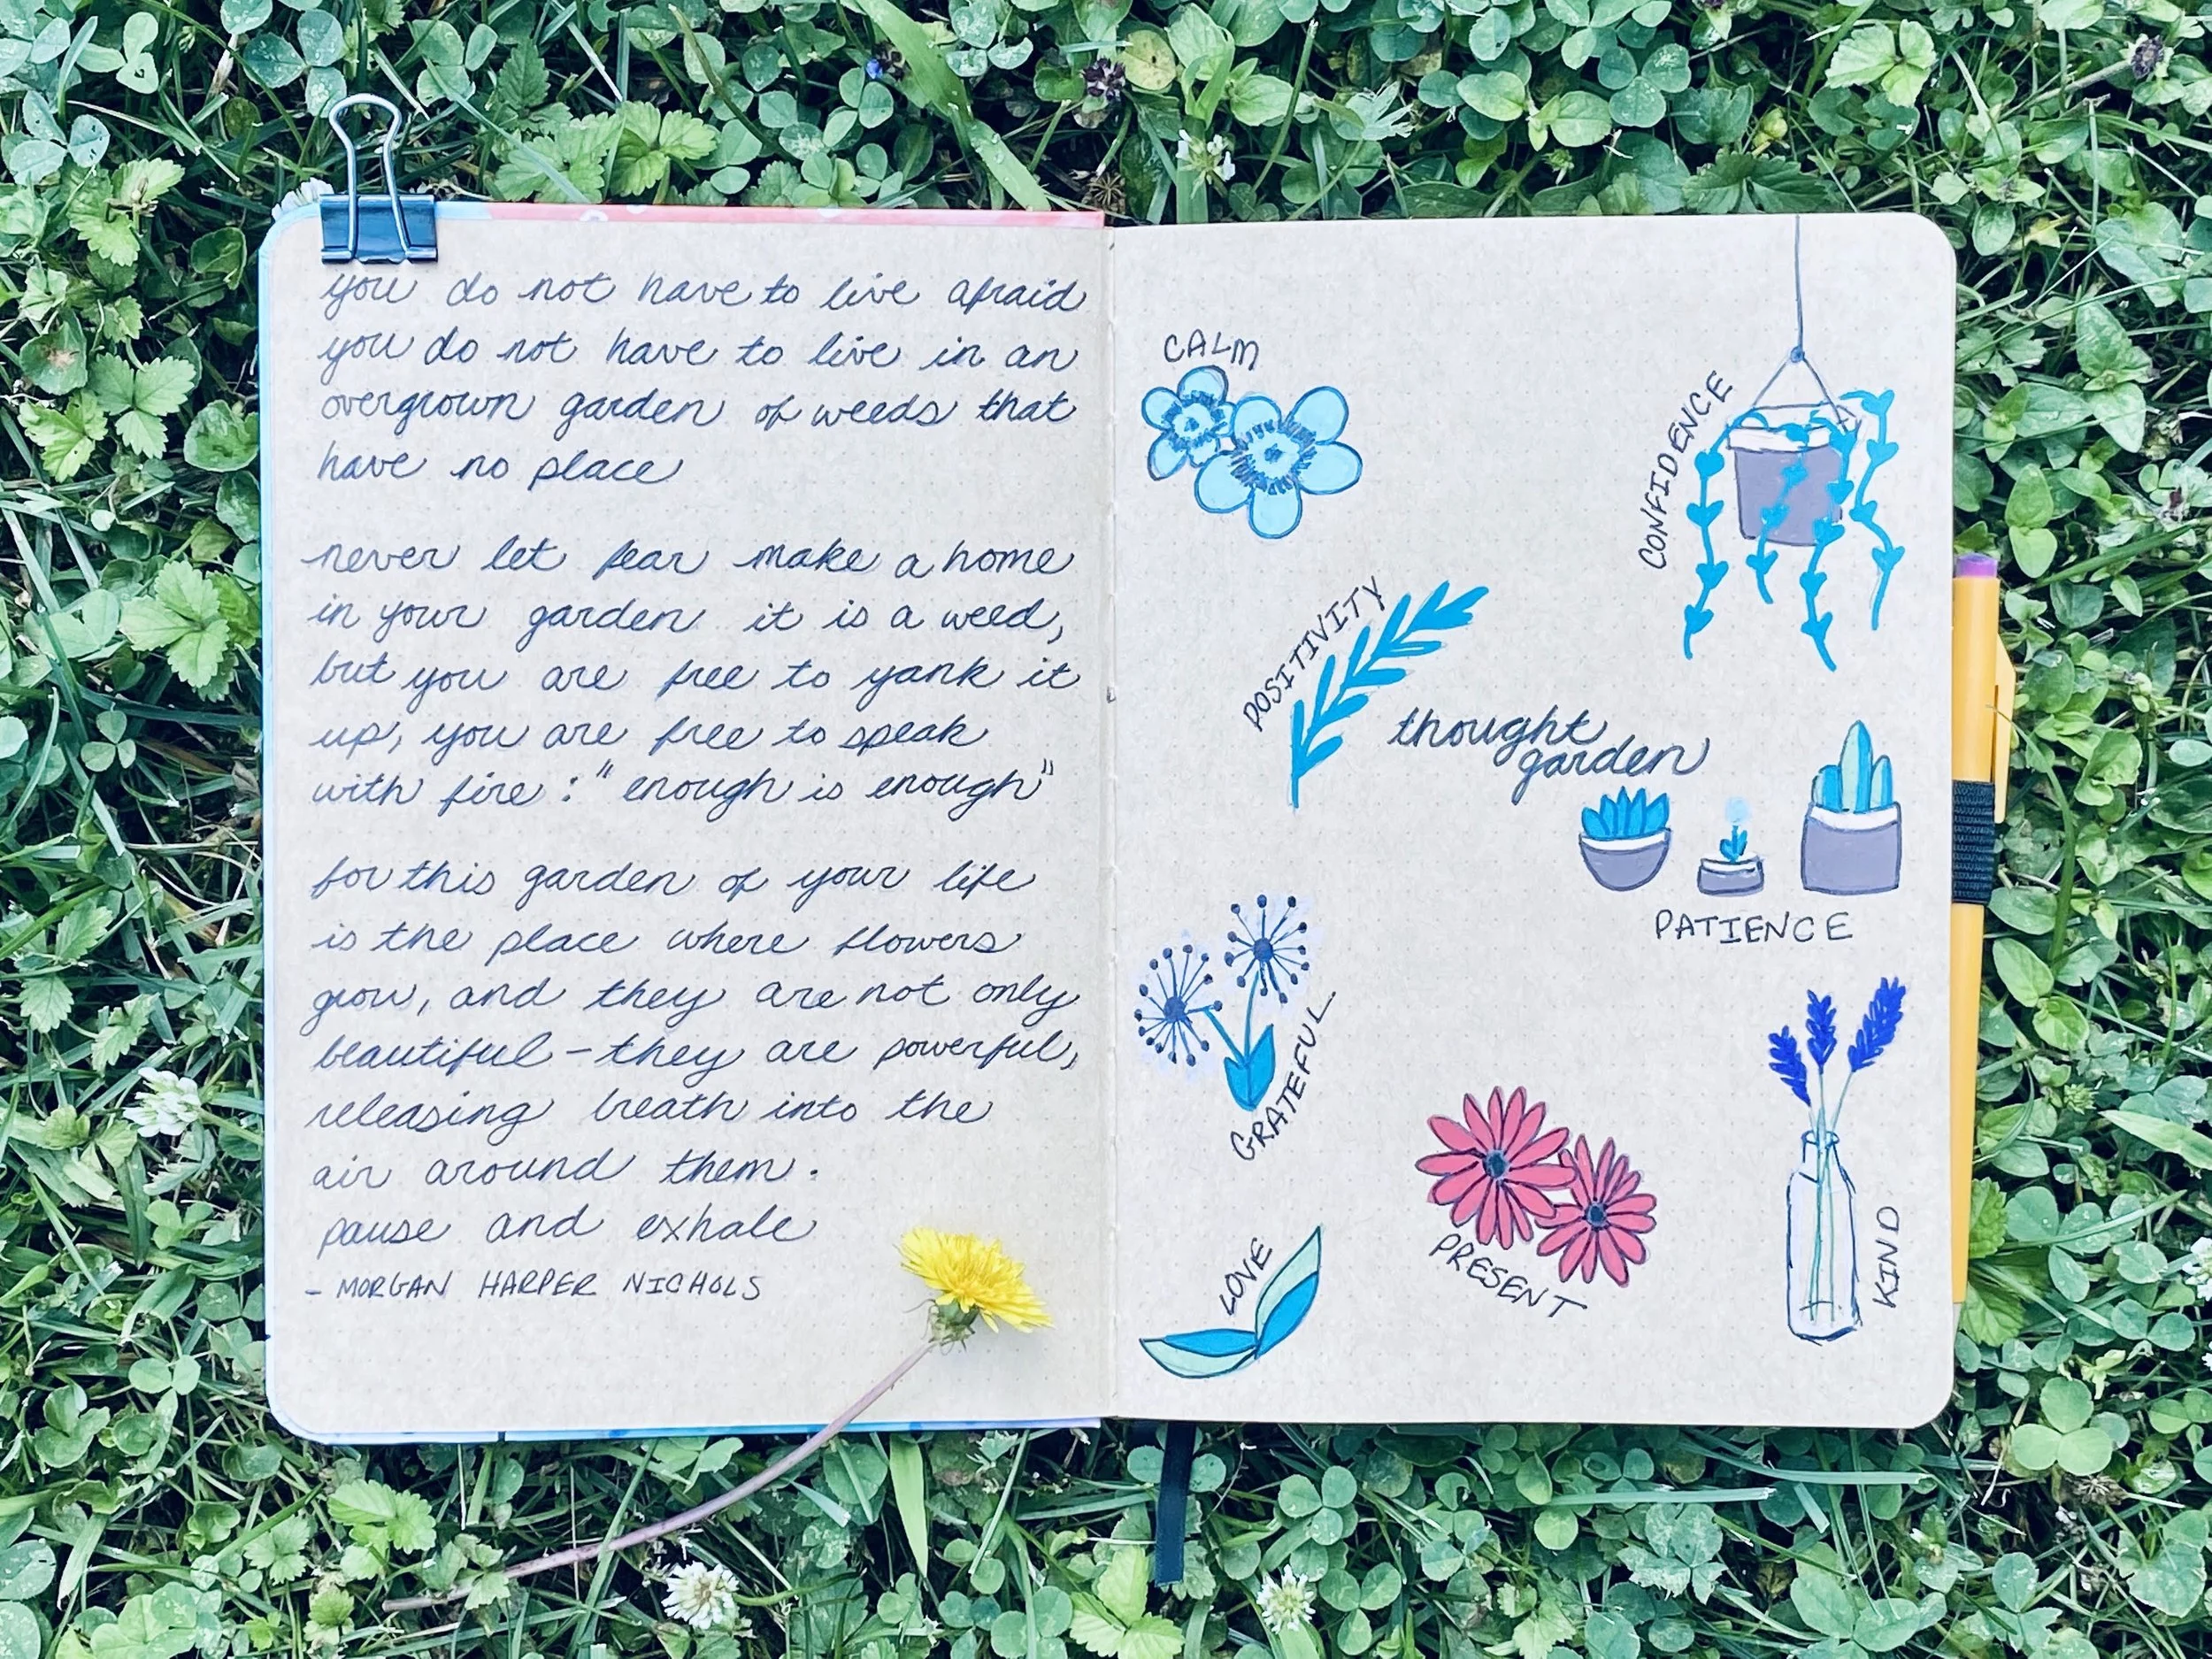 you do not have to live afraid
you do not have to live in an
overgrown garden of weeds that
have no place
never let fear make a home
in your garden it is a weed,
but you are free to yank it
up, you are free to speak
with fire: "enough is enough"
for this garden of your life
is the place where flowers
grow, and they are not only
beautiful - they are powerful,
releasing breath into the
air around them.
pause and exhale
- MORGAN HARPER NICHOLS
CALM
CONFIDENCE
POSITIVITY
thought
garden
PATIENCE
GRATEFUL
PRESENT
KIND
LOVE